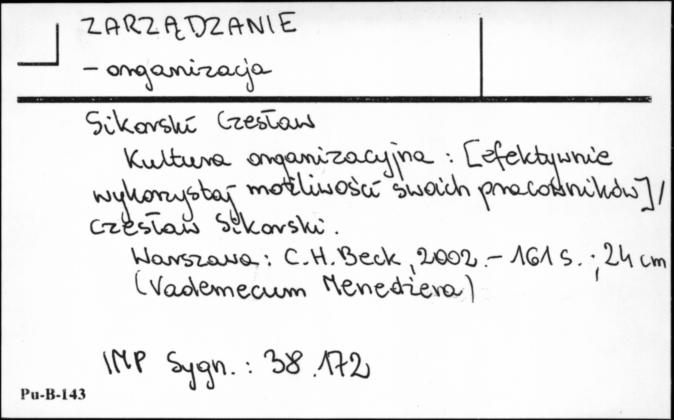 ZARZĄDZANIE
- organizacja
Sikorski Czesław
Kultura organizacyjna : [efektywnie
wykorzystaj możliwości swoich pracowników] /
Czesław Sikorski.
Warszawa : C.H. Beck, 2002. - 161 s. ; 24 cm
(Vademecum Menedżera)
IMP Sygn. : 38.172
Pu-B-143